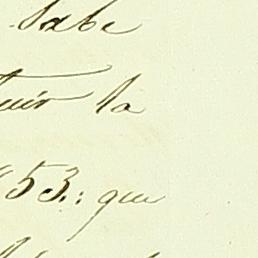 Sabe
uir la
853.: que